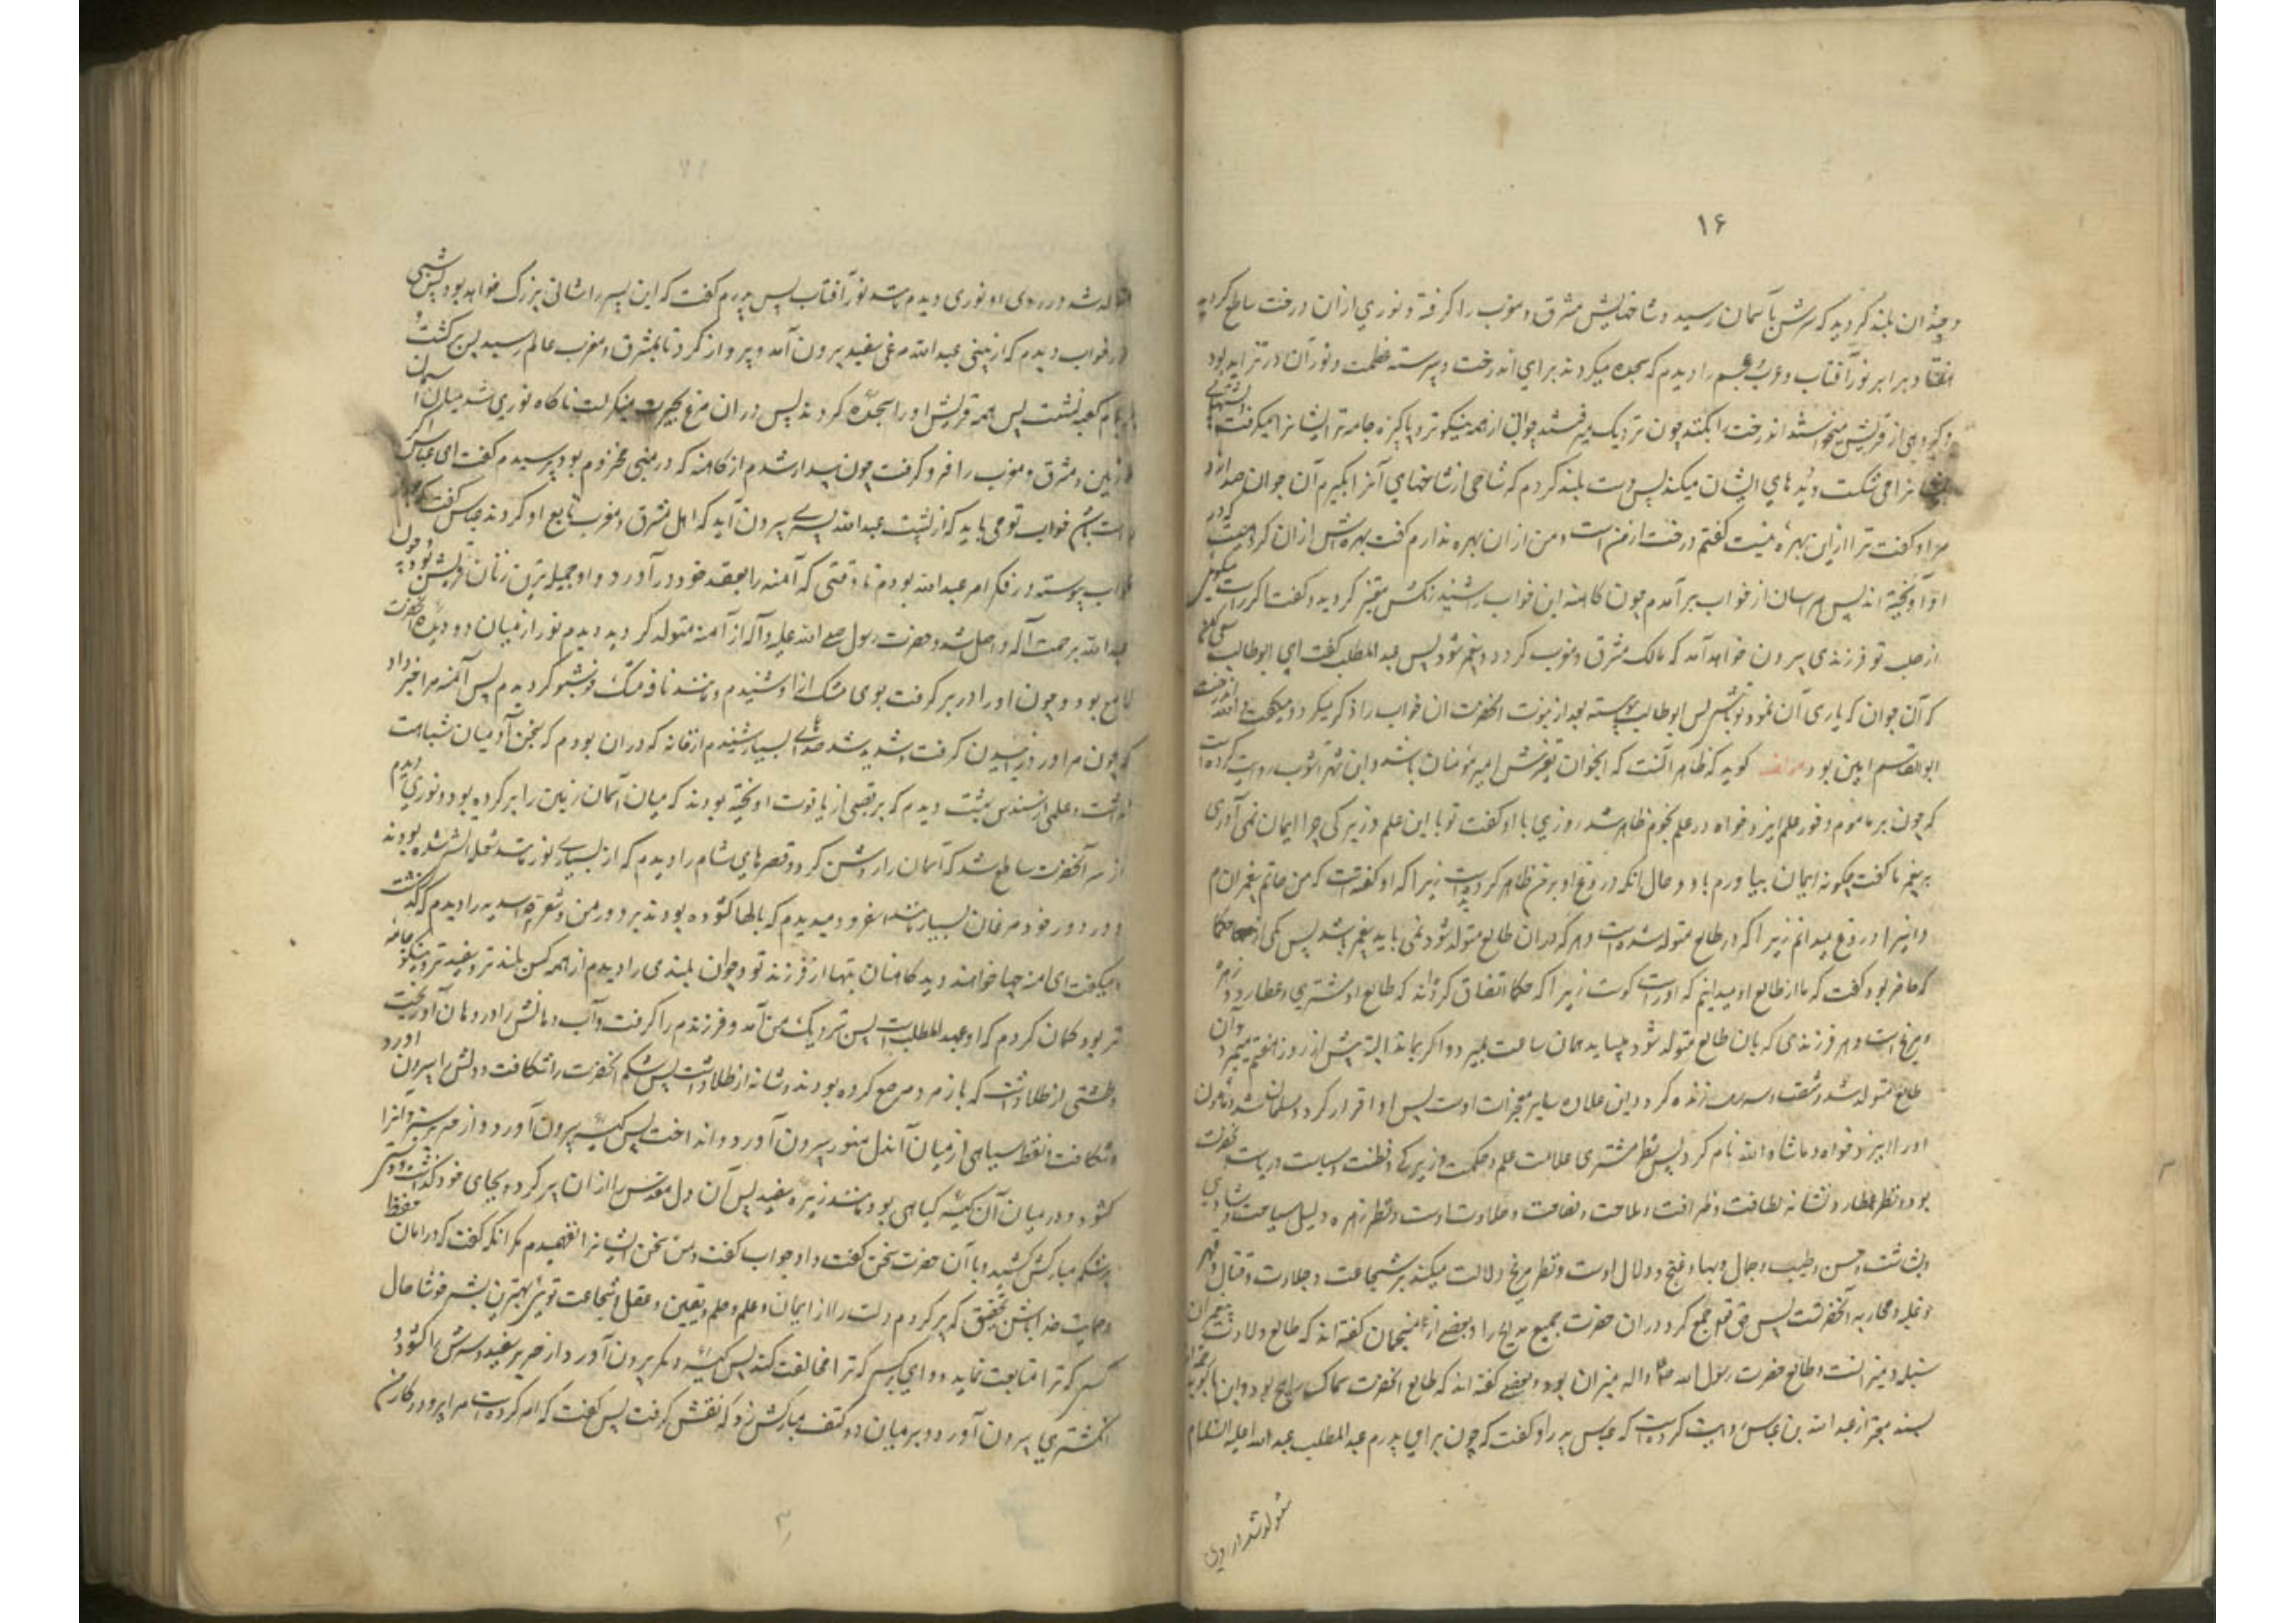 ۱۶
و چندان بلند گردید که سرش بآسمان رسید و شاخهایش مشرق و مغرب را گرفته و نوری از ان درخت ساطع گردید
هفتاد برابر نور آفتاب و عرب و عجم را دیدم که سجده میکردند برای اندرخت و پیوسته عظمت و نور آن در تزاید بود
و گروهی از قریش میخواستند اندرخت را بکنند چون نزدیک میرفتند جوانی از همه نیکوتر و پاکیزه جامه تر ایشانرا میگرفت و پشتهای
ایشانرا می شکست و دیدهای ایشان میکند پس دست بلند کردم که شاخی از شاخهای آنرا بگیرم آن جوان صدا زد
مرا و گفت ترا از این بهره نیست گفتم درخت از من است و من از ان بهره ندارم گفت بهره اش از ان گروهست که در
او آویخته اند پس هراسان از خواب بر آمدم چون کاهنه این خواب را شنید رنگش متغیر گردید و گفت اگر راست میگویی
از صلب تو فرزندی بیرون خواهد آمد که مالک مشرق و مغرب گردد و پیغمبر شود پس عبد المطلب گفت ای ابوطالب سعی کن
که آن جوان که یاری آن نمود تو باشی پس ابوطالب پیوسته بعد از نبوت انحضرت ان خواب را ذکر میکرد و میگفت و الله اندرخت
ابوالقاسم امین بود مؤلف گوید که ظاهر آنست که انجوان تعبیرش امیر مؤمنان باشد و ابن شهر آشوب روایت کرده است
که چون بر مأموم وفور علم ایزد خواه در علم نجوم ظاهر شد روزی با او گفت تو با این علم و زیرکی چرا ایمان نمی آوری
بپیغمبر ما گفت چگونه ایمان بیاورم باو و حال انکه دروغ او بر من ظاهر گردیده است زیرا که او گفته است که من خاتم پیغمبرانم
و اینرا دروغ میدانم زیرا که در طالع متولد شده است و هر که در ان طالع متولد شود نمی باید پیغمبر باشد پس یکی از حکما
که حاضر بود گفت که ما از طالع او میدانیم که او راست گوست زیرا که حکما اتفاق کرده اند که طالع او مشتری و عطارد و زهره
و مریخ است و هر فرزندی که بان طالع متولد شود میباید همان ساعت بمیرد و اگر بماند البته پیش از روز هفتم میمیرد و ان
طالع متولد شد و شصت و سه سال زنده گردد این علاوه سایر معجزات اوست پس او اقرار کرد و مسلمان شد و مأمون
او را ایزد خواه و ماشاء الله نام کرد پس نظر مشتری علامت علم و حکمت و زیرکی و فطنت و سیاست و ریاست انحضرت
بود و نظر عطارد نشانه لطافت و ظرافت و ملاحت و فصاحت و حلاوت اوست و نظر زهره دلیل صباحت و شادی
و بشاشت و حسن و طیب و جمال و بها و غنج و دلال اوست و نظر مریخ دلالت میکند بر شجاعت و جلادت و قتال و قهر
و غلبه و محاربه آنحضرتست پس حق تعالی جمع کرد در ان حضرت جمیع مدایح را و بعضی از منجمان گفته اند که طالع ولادت پیغمبران
سنبله و میزانست و طالع حضرت رسول الله ص و اله میزان بود و بعضی گفته اند که طالع انحضرت سماک رامح بود و ابن بابویه
بسند معتبر از عبد الله بن عباس روایت کرده است که عباس پدر او گفت که چون برای پدرم عبد المطلب عبد الله علیه السلام
متولد شد در روی
متولد شد در روی او نوری دیدم مانند نور آفتاب پس پدرم گفت که این پسر را شانی بزرگ خواهد بود پس شبی
در خواب دیدم که از بینی عبد الله مرغی سفید بیرون آمد و پرواز کرد تا بمشرق و مغرب عالم رسید پس برگشت و
بر بام کعبه نشست پس همه قریش او را سجده کردند پس در ان مرغ بحیرت مینگریست ناگاه نوری شد میان آسمان
و زمین و مشرق و مغرب را فرو گرفت چون بیدار شدم از کاهنه که در بنی مخزوم بود پرسیدم گفت ای عباس اگر
راست باشد خواب تو می باید که از پشت عبد الله پسری بیرون آید که اهل مشرق و مغرب تابع او گردند عباس گفت که بعد از ان
خواب پیوسته در فکر امر عبد الله بودم تا وقتی که آمنه را بعقد خود در آورد و او جمیله ترین زنان قریش بود و چون
عبد الله برحمت آله واصل شد و حضرت رسول صلی الله علیه و آله از آمنه متولد گردید دیدم نور از میان دو دیده آنحضرت
لامع بود و چون او را در بر گرفتم بوی مشک از او شنیدم و مانند نافه مشک خوشبو گردیدم پس آمنه مرا خبر داد
که چون مرا درد زائیدن گرفت و شدید شد صدای بسیار شنیدم از خانه که در ان بودم که بسخن آدمیان شباهت
نداشت و علمی از سندس بهشت دیدم که بر قصبی از یاقوت اویخته بودند که میان آسمان و زمین را پر کرده بود و نوری دیدم
از سر آنحضرت ساطع شد که آسمان را روشن کرد و قصرهای شام را دیدم که از بسیاری نور مانند شعله آتش شده بودند
و در دور خود مرغان بسیار مانند اسفرود میدیدم که بالها گشوده بودند بر دور من و شعیره اسدیه را دیدم که گذشت
و میگفت ای امنه چها خواهند دید کاهنان و بتها از فرزند تو و جوان بلندی را دیدم از همه کس بلند تر و سفید تر و نیکو جامه
تر بود گمان کردم که او عبد المطلب است پس نزدیک من آمد و فرزندم را گرفت و آب دهانش را در دهان او ریخت
و طشتی از طلا داشت که با زمرد مرصع کرده بودند و شانه از طلا داشت پس شکم انحضرت را شکافت و دلش را بیرون اورد
و شکافت و نقطه سیاهی از میان آندل منور بیرون آورد و انداخت پس کیسه بیرون آورد از حریر سبز و آنرا
گشود و در میان آن کیسه گیاهی بود مانند زریره سفید پس آن دل مقدس را از ان پر کرد و بجای خود گذاشت و دست
بر شکم مبارکش کشید و با آن حضرت سخن گفت و او جواب گفت و من سخن ایشانرا نفهمیدم مگر انکه گفت که در امان و حفظ
و حمایت خدا باش بتحقیق که پر کردم دلت را از ایمان و علم و حلم و یقین و عقل و شجاعت تویی بهترین بشر خوشا حال
کسی که ترا متابعت نماید و وای بر کسی که ترا مخالفت کند پس کیسه دیگر بیرون آورد از حریر سفید و سرش را گشود و
انگشتری بیرون آورد و بر میان دو کتف مبارکش زد که نقش گرفت پس گفت که امر کرده است مرا پروردگار من